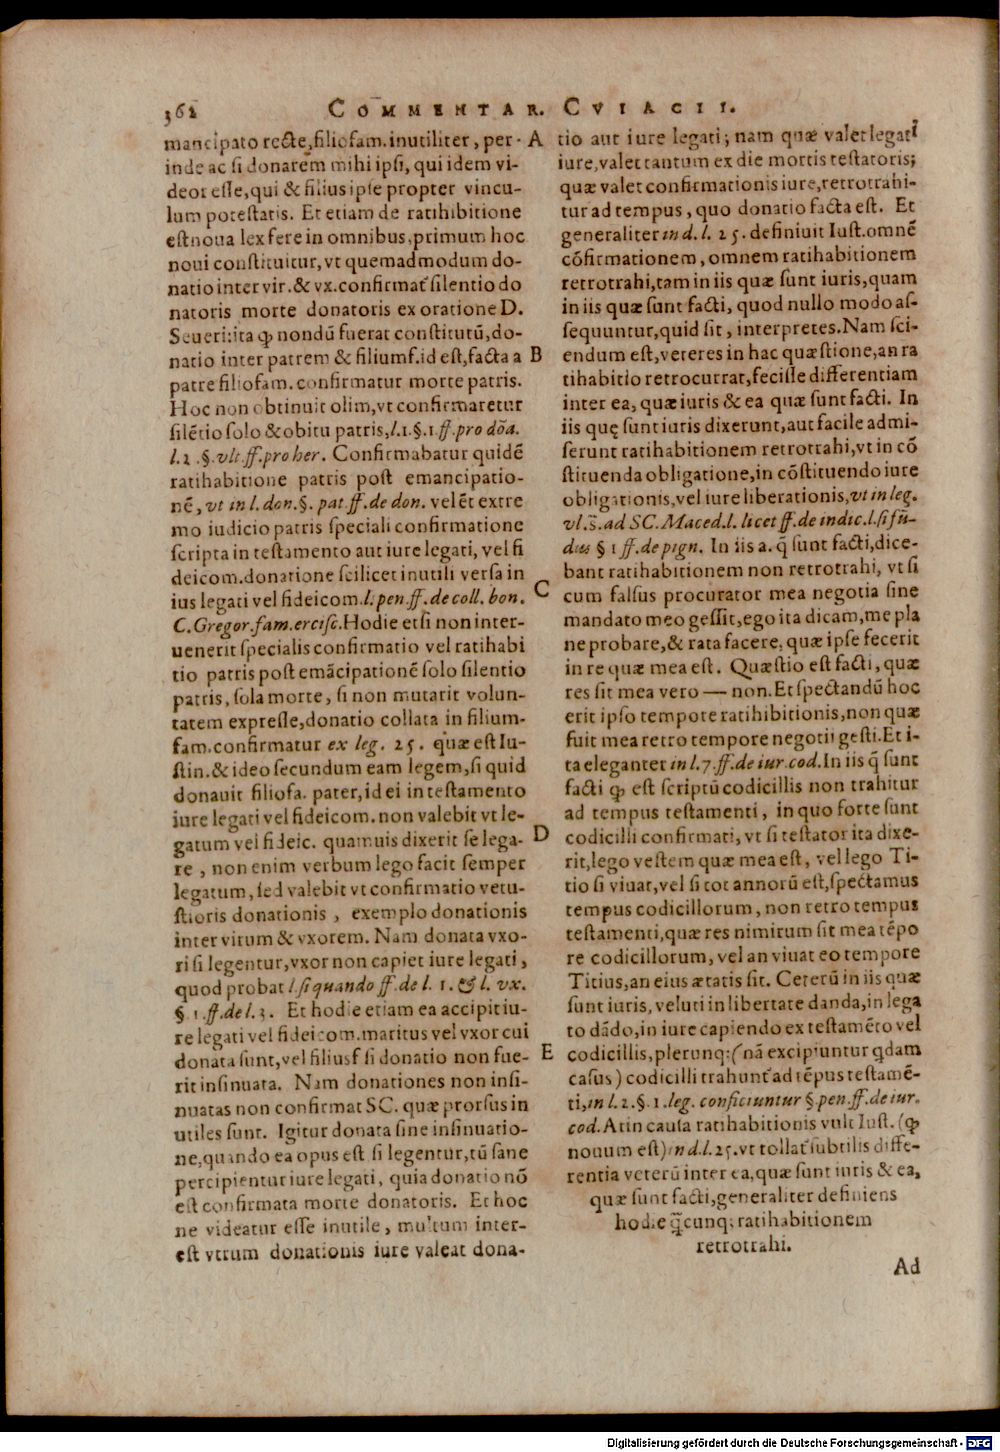 362 COMMENTAR. CVIACII.
mancipato recte, filiofam. inutiliter, per-
inde ac si donarem mihi ipsi, qui idem vi-
deor esse, qui & filius ipse propter vincu-
lum potestatis. Et etiam de ratihibitione
est noua lex fere in omnibus, primum hoc
noui constituitur, vt quemadmodum do-
natio inter vir. & vx. confirmat̃ silentio do
natoris morte donatoris ex oratione D.
Seueri: ita ꝙ nondũ fuerat constitutũ, do-
natio inter patrem & filiumf. id est, facta a
patre filiofam. confirmatur morte patris.
Hoc non obtinuit olim, vt confirmaretur
silẽtio solo & obitu patris, l. 1. §. 1 ff. pro dõa.
l. 2. §. vlt. ff. pro her. Confirmabatur quidẽ
ratihabitione patris post emancipatio-
nẽ, vt in l. don. §. pat. ff. de don. vel ẽt extre
mo iudicio patris speciali confirmatione
scripta in testamento aut iure legati, vel fi
deicom. donatione scilicet inutili versa in
ius legati vel fideicom. l. pen. ff. de coll. bon.
C. Gregor. fam. ercisc. Hodie etsi non inter-
uenerit specialis confirmatio vel ratihabi
tio patris post emãcipationẽ solo silentio
patris, sola morte, si non mutarit volun-
tatem expresse, donatio collata in filium-
fam. confirmatur ex leg. 25. quæ est Iu-
stin. & ideo secundum eam legem, si quid
donauit filiofa. pater, id ei in testamento
iure legati vel fideicom. non valebit vt le-
gatum vel fideic. quamuis dixerit se lega-
re, non enim verbum lego facit semper
legatum, sed valebit vt confirmatio vetu-
stioris donationis, exemplo donationis
inter virum & vxorem. Nam donata vxo-
ri si legentur, vxor non capiet iure legati,
quod probat l. si quando ff. de l. 1. & l. vx.
§. 1. ff. de l. 3. Et hodie etiam ea accipit iu-
re legati vel fideicom. maritus vel vxor cui
donata sunt, vel filiusf si donatio non fue-
rit insinuata. Nam donationes non insi-
nuatas non confirmat SC. quæ prorsus in
utiles sunt. Igitur donata sine insinuatio-
ne, quando ea opus est si legentur, tũ sane
percipientur iure legati, quia donatio nõ
est confirmata morte donatoris. Et hoc
ne videatur esse inutile, multum inter-
est vtrum donationis iure valeat dona-
A
B
C
D
E
tio aut iure legati; nam quæ valet legati
iure, valet tantum ex die mortis testatoris;
quæ valet confirmationis iure, retrotrahi-
tur ad tempus, quo donatio facta est. Et
generaliter in d. l. 25. definiuit Iust. omnẽ
cõfirmationem, omnem ratihabitionem
retrotrahi, tam in iis quæ sunt iuris, quam
in iis quæ sunt facti, quod nullo modo as-
sequuntur, quid sit, interpretes. Nam sci-
endum est, veteres in hac quæstione, an ra
tihabitio retrocurrat, fecisse differentiam
inter ea, quæ iuris & ea quæ sunt facti. In
iis quę sunt iuris dixerunt, aut facile admi-
serunt ratihabitionem retrotrahi, vt in cõ
stituenda obligatione, in cõstituendo iure
obligationis, vel iure liberationis, vt in leg.
vl. §. ad SC. Maced. l. licet ff. de iudic. l. si fũ-
dus § 1 ff. de pign. In iis a. q̃ sunt facti, dice-
bant ratihabitionem non retrotrahi, vt si
cum falsus procurator mea negotia sine
mandato meo gessit, ego ita dicam, me pla
ne probare, & rata facere, quæ ipse fecerit
in re quæ mea est. Quæstio est facti, quæ
res sit mea vero — non. Et spectandũ hoc
erit ipso tempore ratihibitionis, non quæ
fuit mea retro tempore negotii gesti. Et i-
ta eleganter in l. 7. ff. de iur. cod. In iis q̃ sunt
facti ꝙ est scriptũ codicillis non trahitur
ad tempus testamenti, in quo forte sunt
codicilli confirmati, vt si testator ita dixe-
rit, lego vestem quæ mea est, vel lego Ti-
tio si viuat, vel si tot annorũ est, spectamus
tempus codicillorum, non retro tempus
testamenti, quæ res nimirum sit mea tẽpo
re codicillorum, vel an viuat eo tempore
Titius, an eius ætatis sit. Ceterũ in iis quæ
sunt iuris, veluti in libertate danda, in lega
to dãdo, in iure capiendo ex testamẽto vel
codicillis, plerunq; (nã excipiuntur q̃dam
casus) codicilli trahunt̃ ad tẽpus testamẽ-
ti, in l. 2. §. 1. leg. conficiuntur §. pen. ff. de iur.
cod. At in causa ratihabitionis vult Iust. (ꝙ
nouum est) in d. l. 25. vt tollat̃ subtilis diffe-
rentia veterũ inter ea, quæ sunt iuris & ea,
quæ sunt facti, generaliter definiens
hodie q̃cunq; ratihabitionem
retrotrahi.
Ad
Digitalisierung gefördert durch die Deutsche Forschungsgemeinschaft - DFG